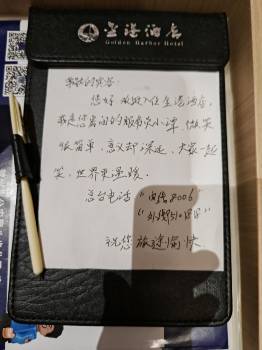 金港酒店
Golden Harbor Hotel
敬爱的宾客:
您好 欢迎入住金港酒店,
我是您房间的服务员小谭, 微笑
很简单, 意义却深远, 大家一起
笑, 世界更温暖.
总台电话 "内线8006"
祝您 旅途愉快